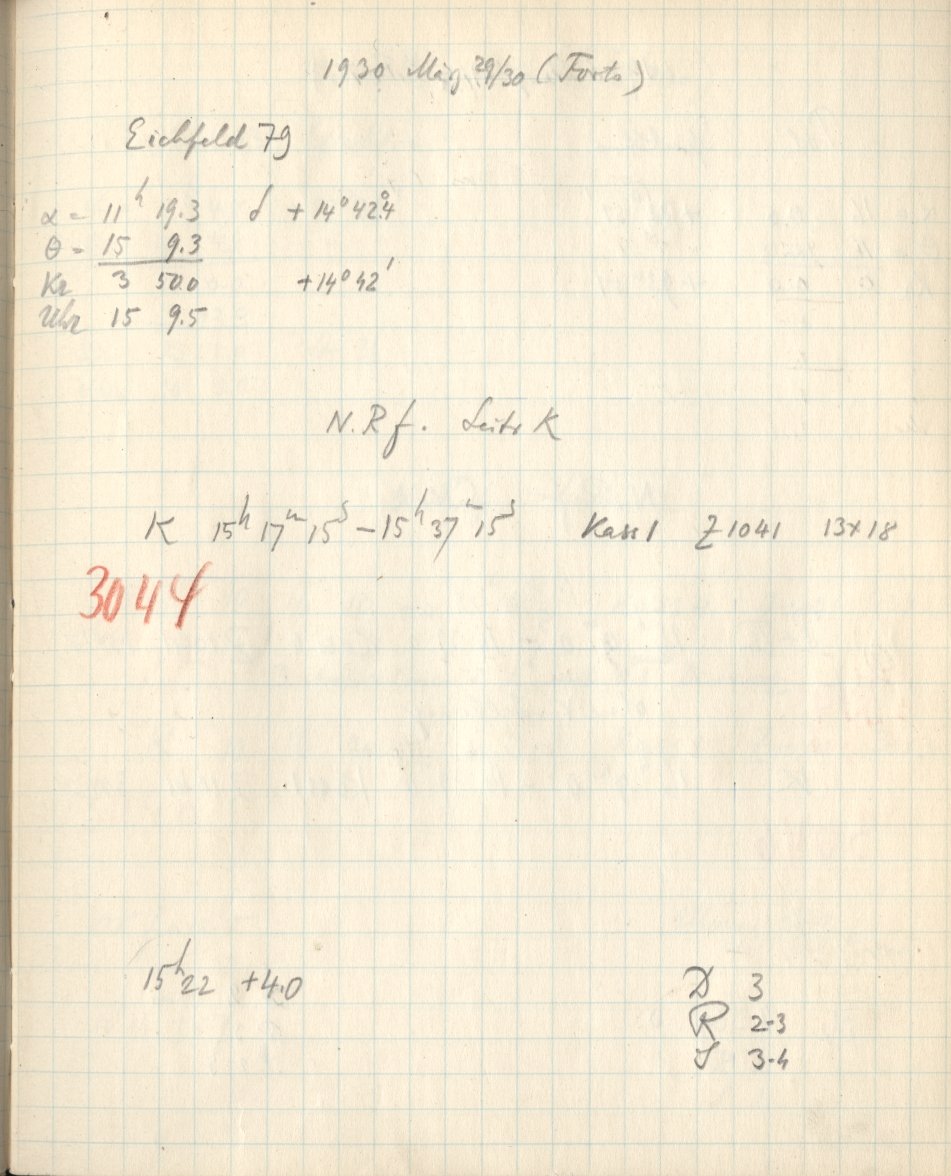 1930 März 29/30 (Forts)
Eichfeld 79
α = 11ʰ 19.3 δ +14° 42.4
θ = 15 9.3
Kr 3 50.0 +14° 42'
Uhr 15 9.5
N.R f. Seite K
K 15ʰ 17ᵐ 15ˢ – 15ʰ 37ᵐ 15ˢ Kass 1 Z 1041 13×18
3044
15ʰ22 +4.0
D 3
R 2-3
J 3-4